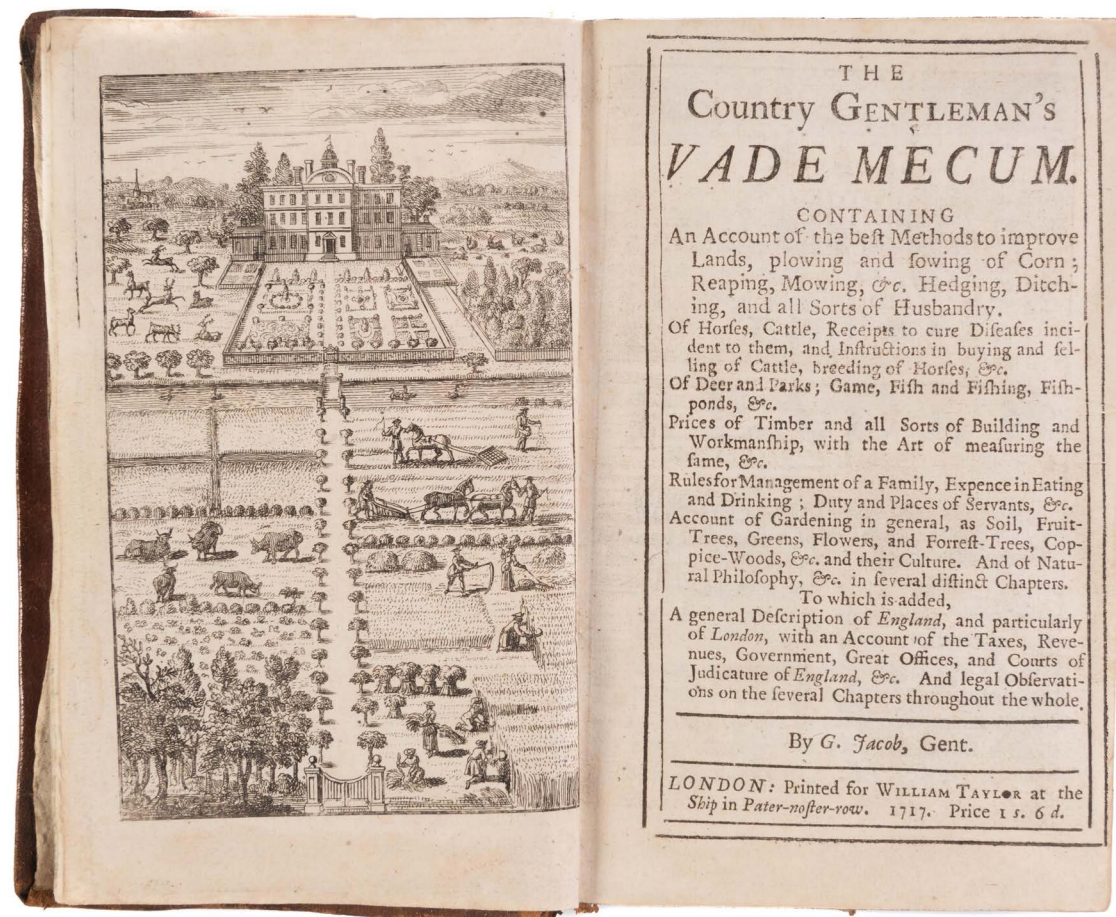 THE
Country GENTLEMAN's
VADE MECUM.
CONTAINING
An Account of the beſt Methods to improve
Lands, plowing and ſowing of Corn;
Reaping, Mowing, &c. Hedging, Ditch-
ing, and all Sorts of Husbandry.
Of Horſes, Cattle, Receipts to cure Diſeaſes inci-
dent to them, and Inſtructions in buying and ſel-
ling of Cattle, breeding of Horſes, &c.
Of Deer and Parks; Game, Fiſh and Fiſhing, Fiſh-
ponds, &c.
Prices of Timber and all Sorts of Building and
Workmanſhip, with the Art of meaſuring the
ſame, &c.
Rules for Management of a Family, Expence in Eating
and Drinking; Duty and Places of Servants, &c.
Account of Gardening in general, as Soil, Fruit-
Trees, Greens, Flowers, and Forreſt-Trees, Cop-
pice-Woods, &c. and their Culture. And of Natu-
ral Philoſophy, &c. in ſeveral diſtinct Chapters.
To which is added,
A general Deſcription of England, and particularly
of London, with an Account of the Taxes, Reve-
nues, Government, Great Offices, and Courts of
Judicature of England, &c. And legal Obſervati-
ons on the ſeveral Chapters throughout the whole.
By G. Jacob, Gent.
LONDON: Printed for WILLIAM TAYLOR at the
Ship in Pater-noſter-row. 1717. Price 1 s. 6 d.